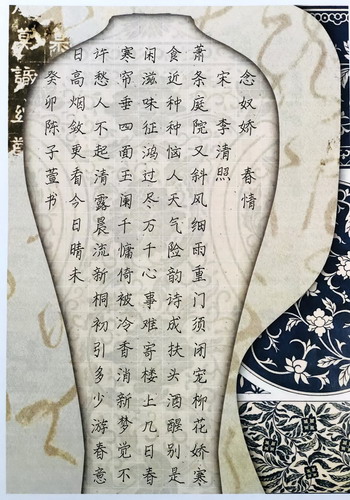 念奴娇 春情
宋 李清照
萧条庭院又斜风细雨重门须闭宠柳花娇寒
食近种种恼人天气险韵诗成扶头酒醒别是
闲滋味征鸿过尽万千心事难寄楼上几日春
寒帘垂四面玉阑干慵倚被冷香消新梦觉不
许愁人不起清露晨流新桐初引多少游春意
日高烟敛更看今日晴未
癸卯陈子萱书